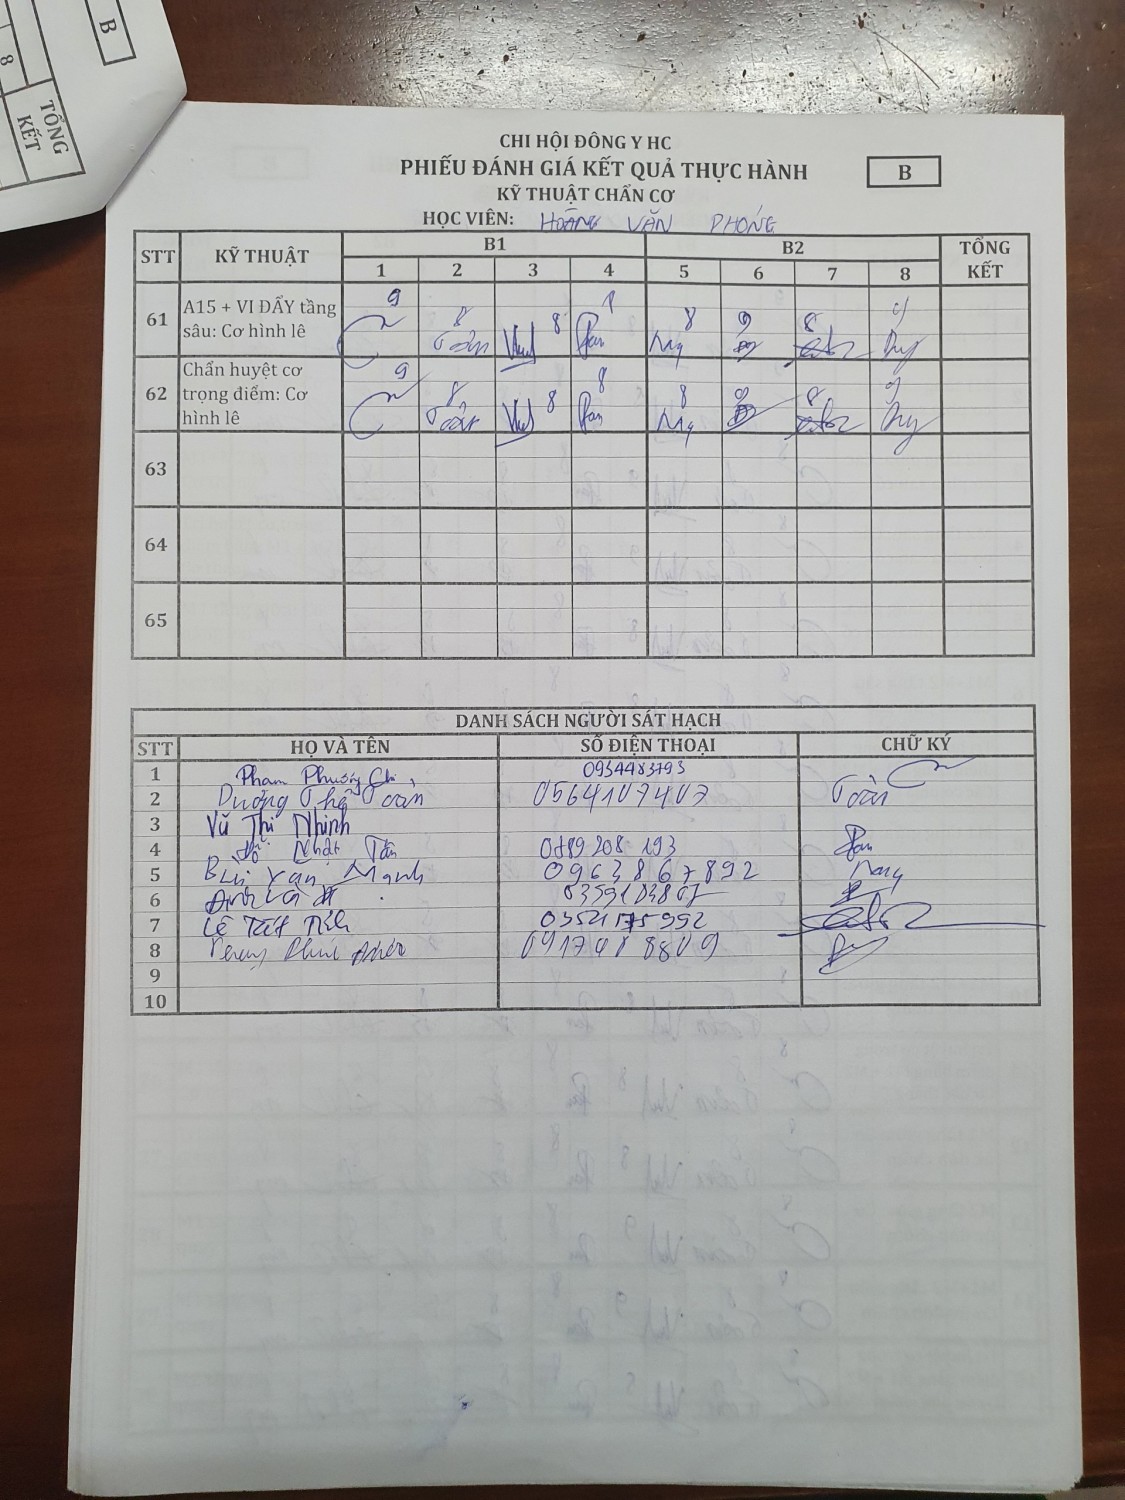 B
8
TỔNG KẾT
CHI HỘI ĐÔNG Y HC
PHIẾU ĐÁNH GIÁ KẾT QUẢ THỰC HÀNH
B
KỸ THUẬT CHẨN CƠ
HỌC VIÊN: HOÀNG VĂN PHÓNG
STT KỸ THUẬT B1 B2 TỔNG KẾT
1 2 3 4 5 6 7 8
61 A15 + VI ĐẨY tầng sâu: Cơ hình lê
9 8 8 8 9 8 9
Toán
62 Chẩn huyệt cơ trọng điểm: Cơ hình lê
9 8 8 8 8 9 8 9
Toán
63
64
65
DANH SÁCH NGƯỜI SÁT HẠCH
STT HỌ VÀ TÊN SỐ ĐIỆN THOẠI CHỮ KÝ
1 Phạm Phương Chi 0934483793
2 Dương Thế Toàn 0564107407 Toàn
3 Vũ Thị Nhinh
4 Nhật Tân 0889208193
5 Bùi Văn Mạnh 0963867892
6
7 Lê Tất 0352175992
8 0917488809
9
10